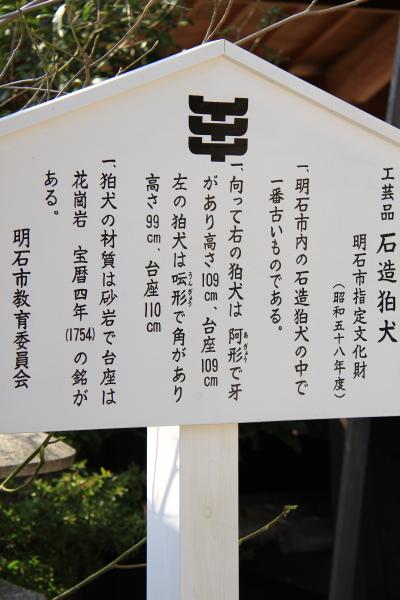 工芸品 石造狛犬
明石市指定文化財
(昭和五十八年度)
一、明石市内の石造狛犬の中で
一番古いものである。
一、向って右の狛犬は 阿形で牙
あぎょう
があり高さ109cm、台座109cm
左の狛犬は呍形で角があり
うんぎょう
高さ99cm、台座110cm
一、狛犬の材質は砂岩で台座は
花崗岩 宝暦四年(1754)の銘が
ある。
明石市教育委員会